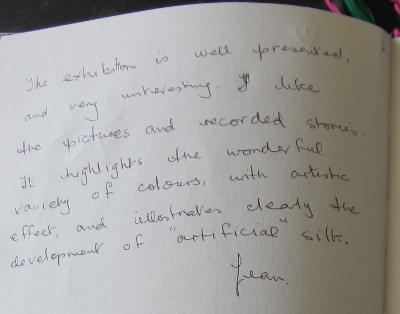 The exhibition is well presented,
and very interesting. I like
the pictures and recorded stories.
It highlights the wonderful
variety of colours, with artistic
effect, and illustrates clearly the
development of "artificial" silk.
Jean.